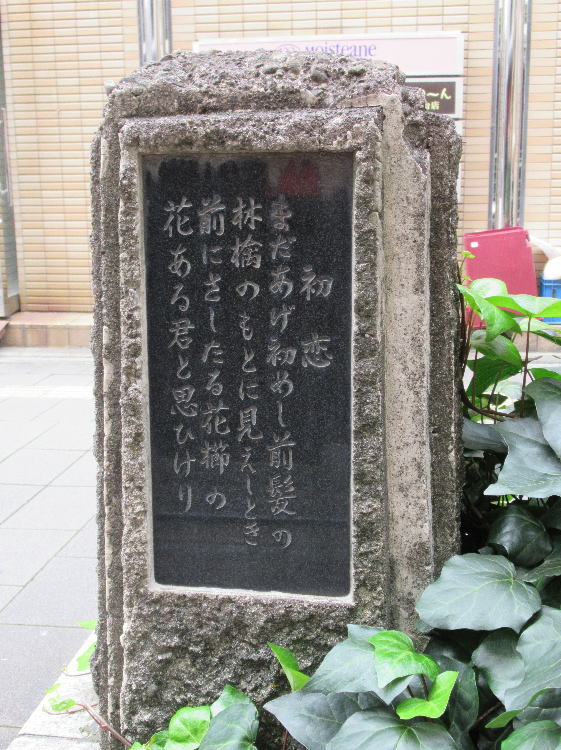 初恋
まだあげ初めし前髪の
林檎のもとに見えしとき
前にさしたる花櫛の
花ある君と思ひけり
Moisteane